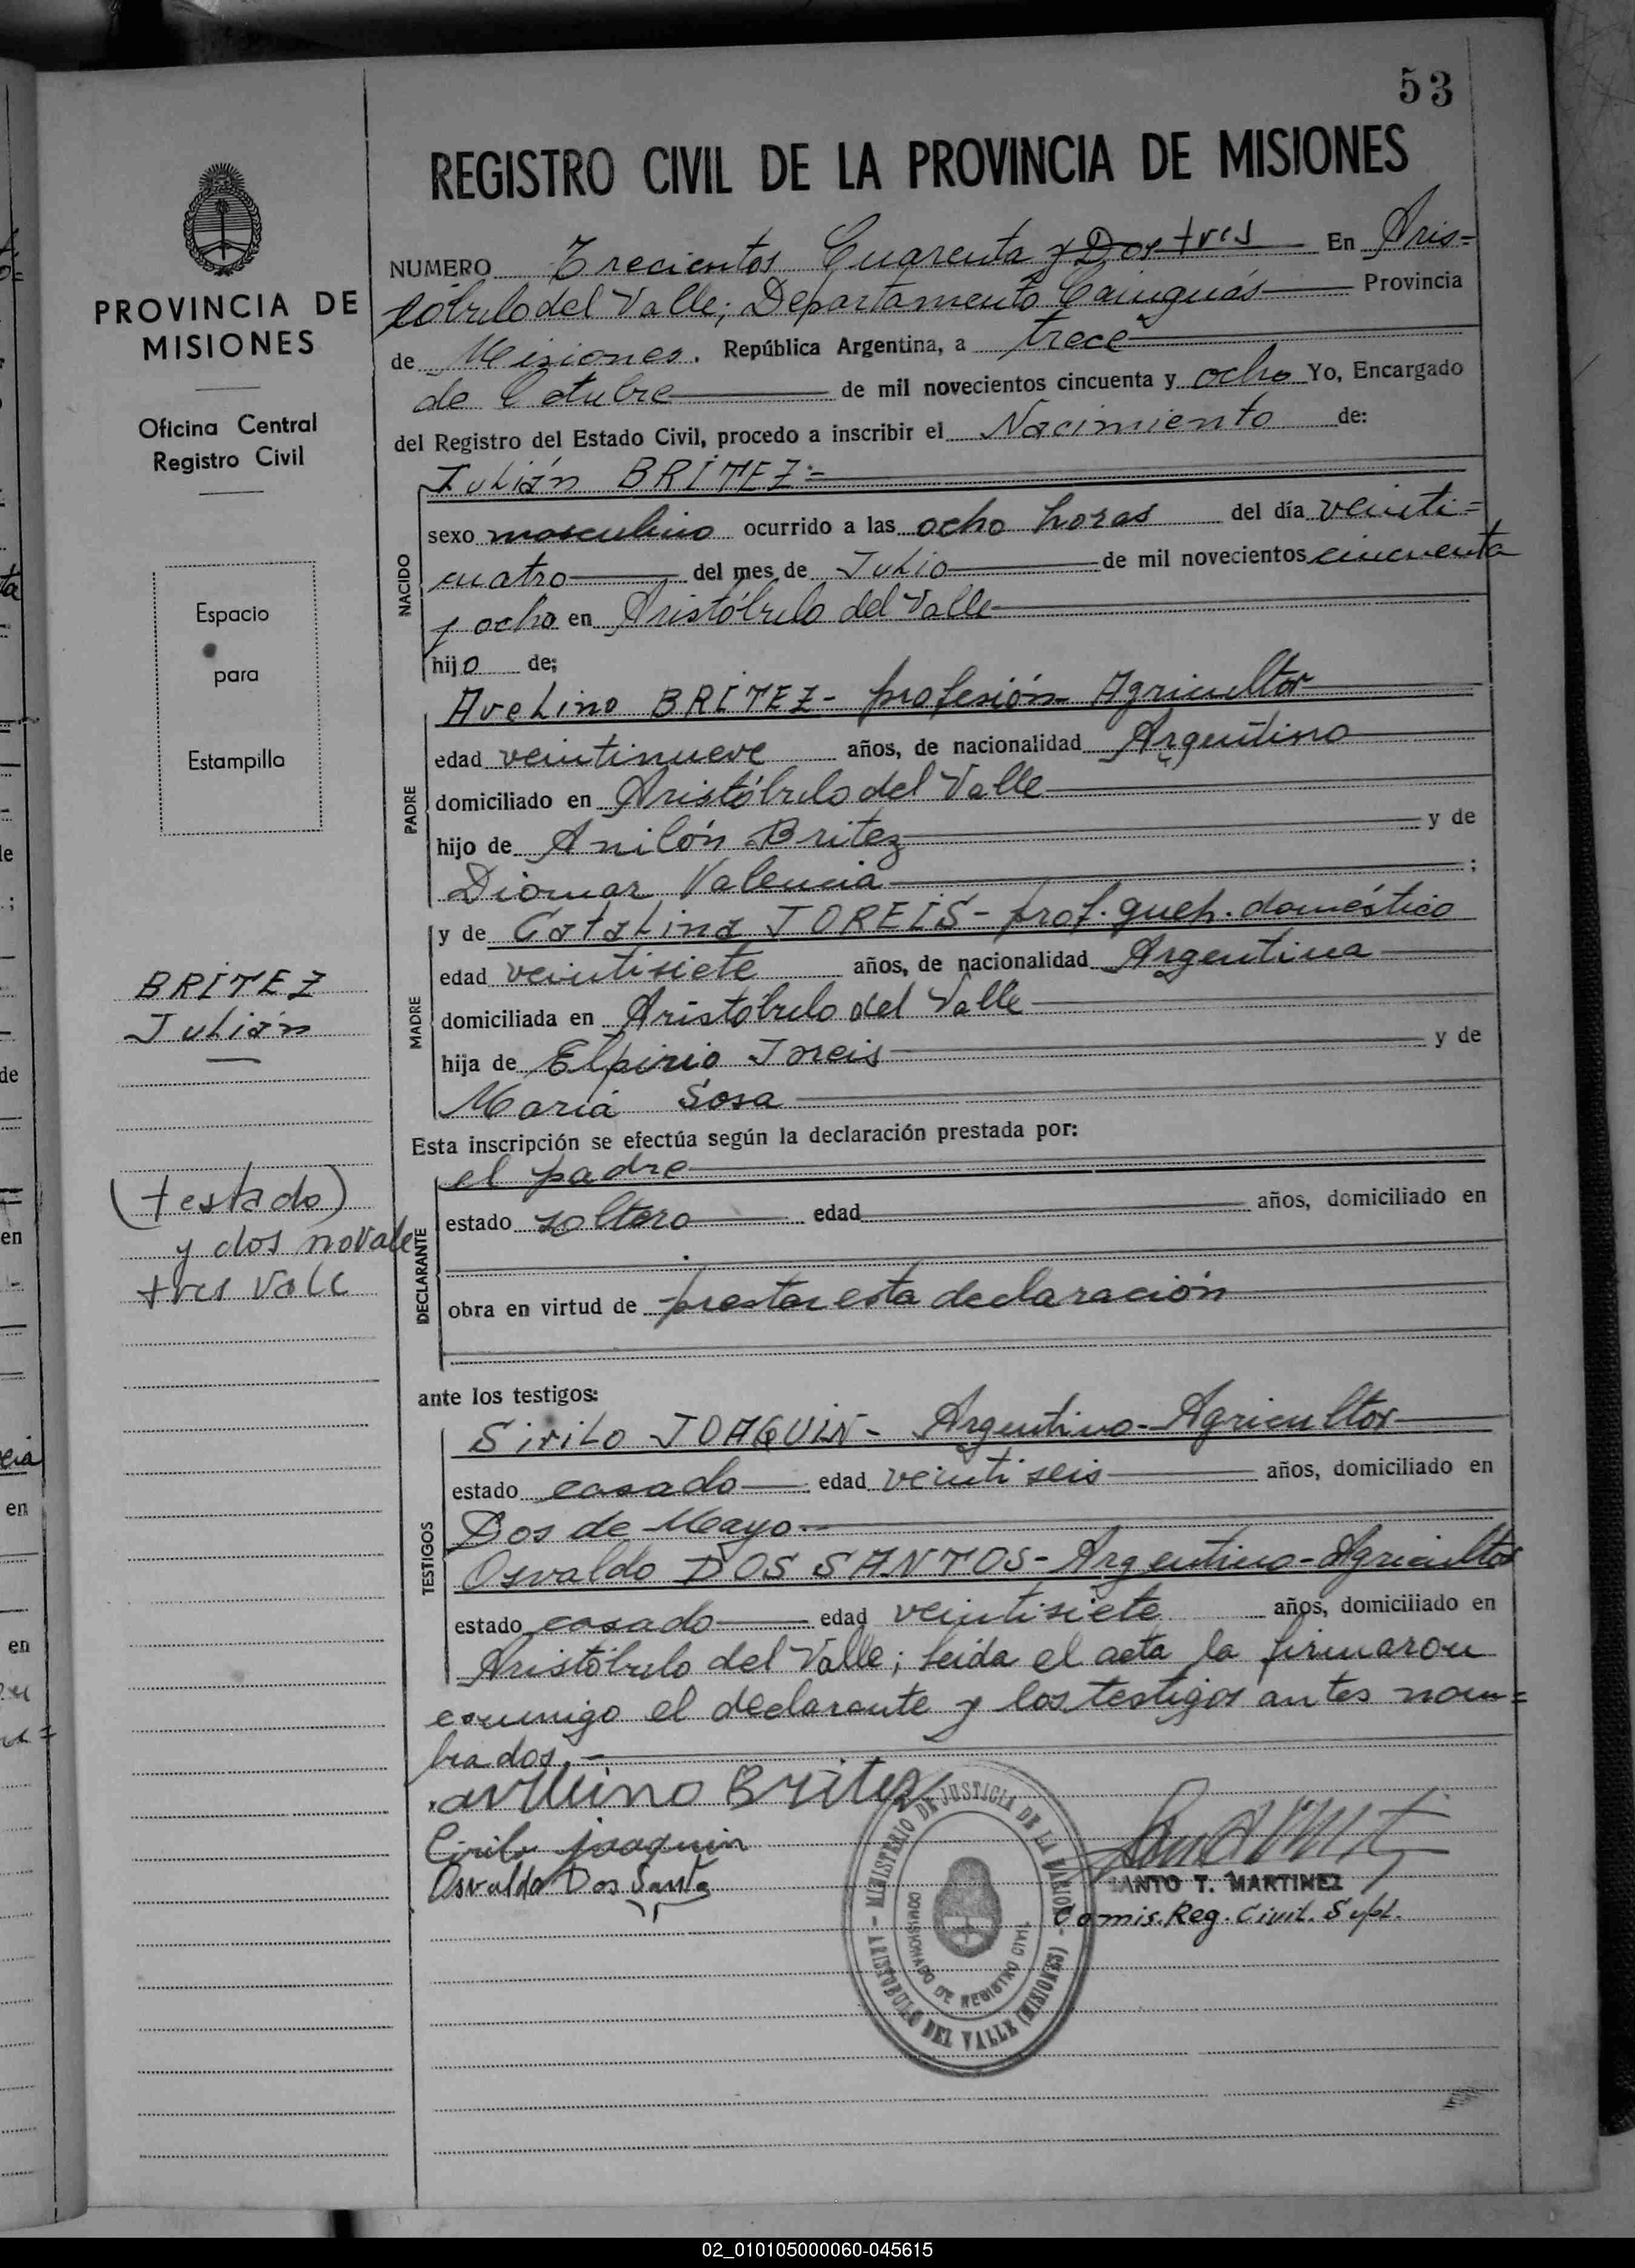 53
REGISTRO CIVIL DE LA PROVINCIA DE MISIONES
NUMERO Trecientos Cuarenta y Dos tres En Aris=
tóbulo del Valle; Departamento Cainguás Provincia
de Misiones. República Argentina, a trece
de Octubre de mil novecientos cincuenta y ocho Yo, Encargado
del Registro del Estado Civil, procedo a inscribir el Nacimiento de:
NACIDO
Julián BRITEZ=
sexo masculino ocurrido a las ocho horas del día veinti=
cuatro del mes de Julio de mil novecientos cincuenta
y ocho en Aristóbulo del Valle
hijo de;
PADRE
Avelino BRITEZ- profesión- Agricultor
edad veintinueve años, de nacionalidad Argentino
domiciliado en Aristóbulo del Valle
hijo de Anilón Britez y de
Diomar Valencia ;
MADRE
y de Catalina JOREIS- prof. queh. doméstico
edad veintisiete años, de nacionalidad Argentina
domiciliada en Aristóbulo del Valle
hija de Elpirio Joreis y de
María Sosa
Esta inscripción se efectúa según la declaración prestada por:
DECLARANTE
el padre
estado soltero edad años, domiciliado en
obra en virtud de prestar esta declaración
ante los testigos:
TESTIGOS
Sirilo JOAQUIN- Argentino- Agricultor
estado casado edad veintiseis años, domiciliado en
Dos de Mayo.-
Osvaldo DOS SANTOS- Argentino- Agricultor
estado casado edad veintisiete años, domiciliado en
Aristóbulo del Valle; leida el acta la firmaron
conmigo el declarante y los testigos antes nom=
brados.-
avelino Britez
Cirilo joaquin
Osvaldo Dos Santo
MINISTERIO DE JUSTICIA DE LA NACION
COMISARIADO DE REGISTRO CIVIL
ARISTOBULO DEL VALLE (MISIONES)
SANTO T. MARTINEZ
Comis. Reg. Civil. Supl.
PROVINCIA DE
MISIONES
Oficina Central
Registro Civil
Espacio
para
Estampilla
BRITEZ
Julián
(testado)
y dos no vale
tres vale
02_010105000060-045615